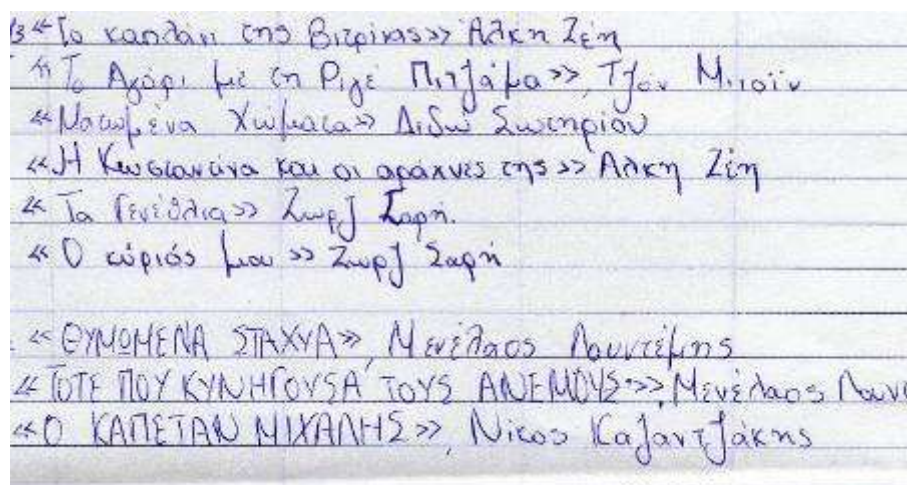 «Το καπλάνι της Βιτρίνας» Άλκη Ζέη
«Το Αγόρι με τη Ριγέ Πιτζάμα», Τζον Μπόιν
«Ματωμένα Χώματα» Διδώ Σωτηρίου
«Η Κωσταντίνα και οι αράχνες της» Άλκη Ζέη
«Τα Γενέθλια» Ζωρζ Σαρή.
«Ο κύριός μου» Ζωρζ Σαρή
«ΘΥΜΩΜΕΝΑ ΣΤΑΧΥΑ», Μενέλαος Λουντέμης
«ΤΟΤΕ ΠΟΥ ΚΥΝΗΓΟΥΣΑ ΤΟΥΣ ΑΝΕΜΟΥΣ», Μενέλαος Λουν
«Ο ΚΑΠΕΤΑΝ ΜΙΧΑΛΗΣ», Νίκος Καζαντζάκης